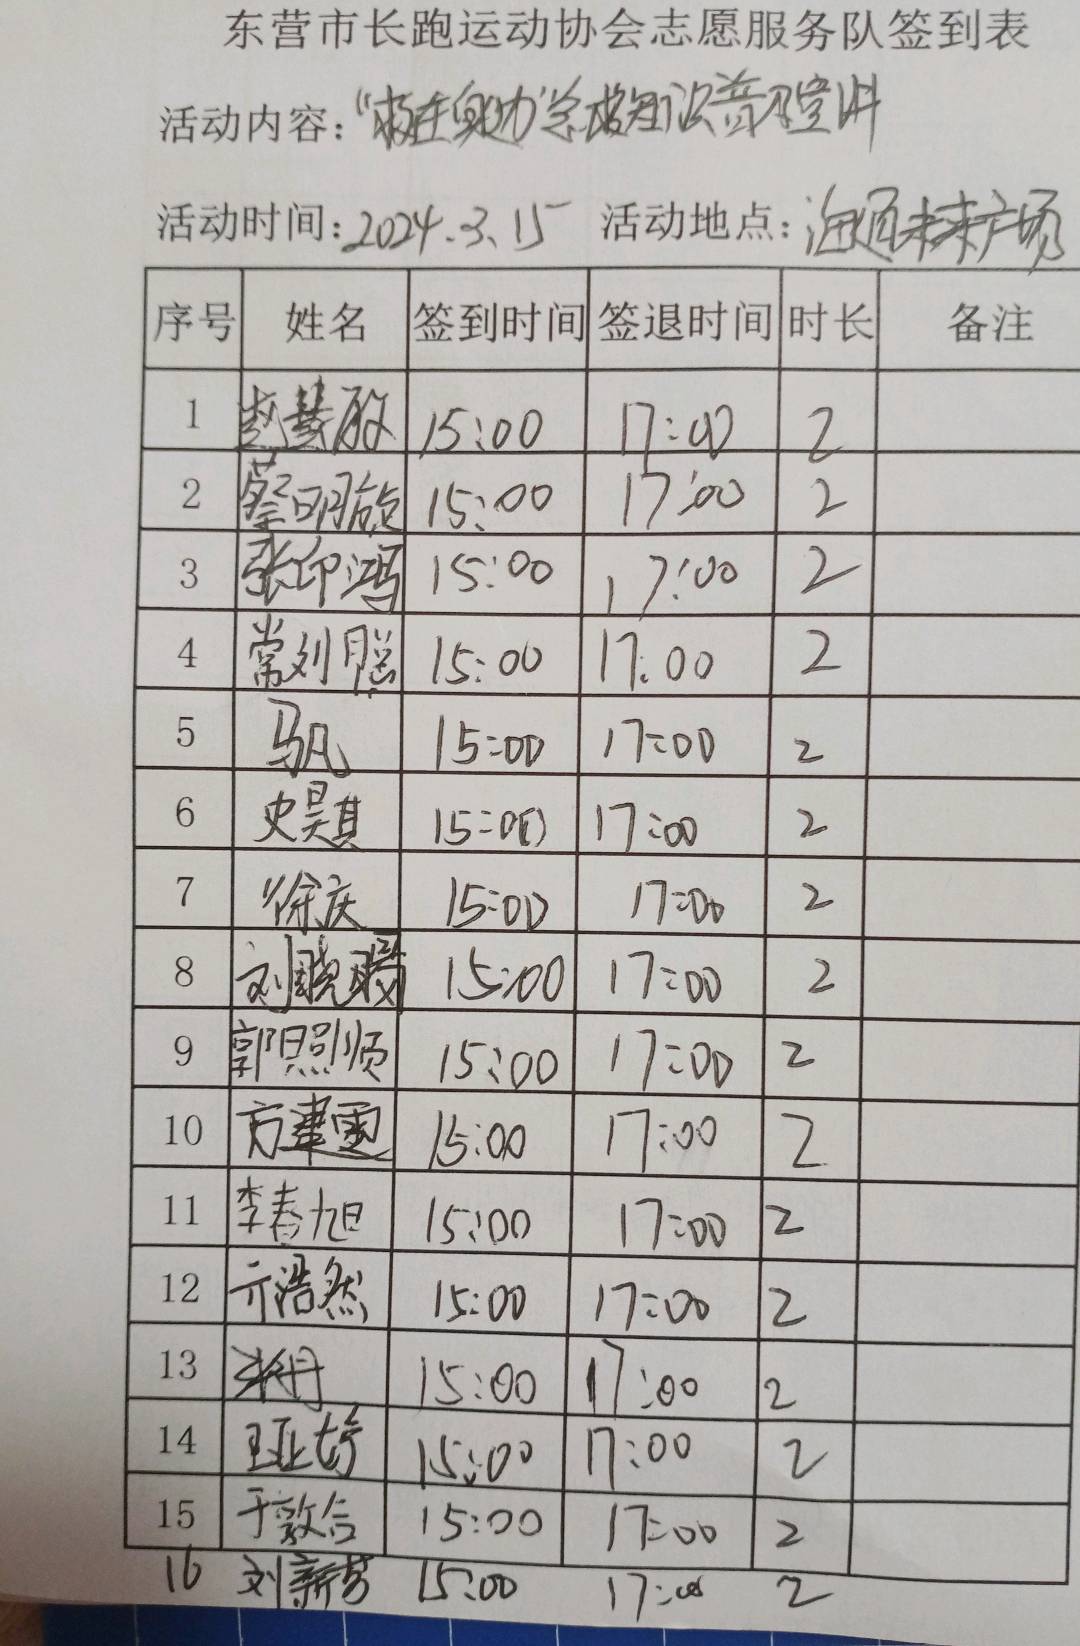 东营市长跑运动协会志愿服务队签到表
活动内容：“救在身边”急救知识普及宣讲
活动时间：2024.3.15 活动地点：海通未来广场
序号 姓名 签到时间 签退时间 时长 备注
1 赵慧敏 15:00 17:00 2
2 蔡明旋 15:00 17:00 2
3 张印鸿 15:00 17:00 2
4 常刘聪 15:00 17:00 2
5 马凡 15:00 17:00 2
6 史昊其 15:00 17:00 2
7 徐庆 15:00 17:00 2
8 刘晓 15:00 17:00 2
9 郭照顺 15:00 17:00 2
10 方 15:00 17:00 2
11 李春旭 15:00 17:00 2
12 亓浩然 15:00 17:00 2
13 张丹 15:00 17:00 2
14 王亚婷 15:00 17:00 2
15 于敦合 15:00 17:00 2
16 刘新芳 15:00 17:00 2